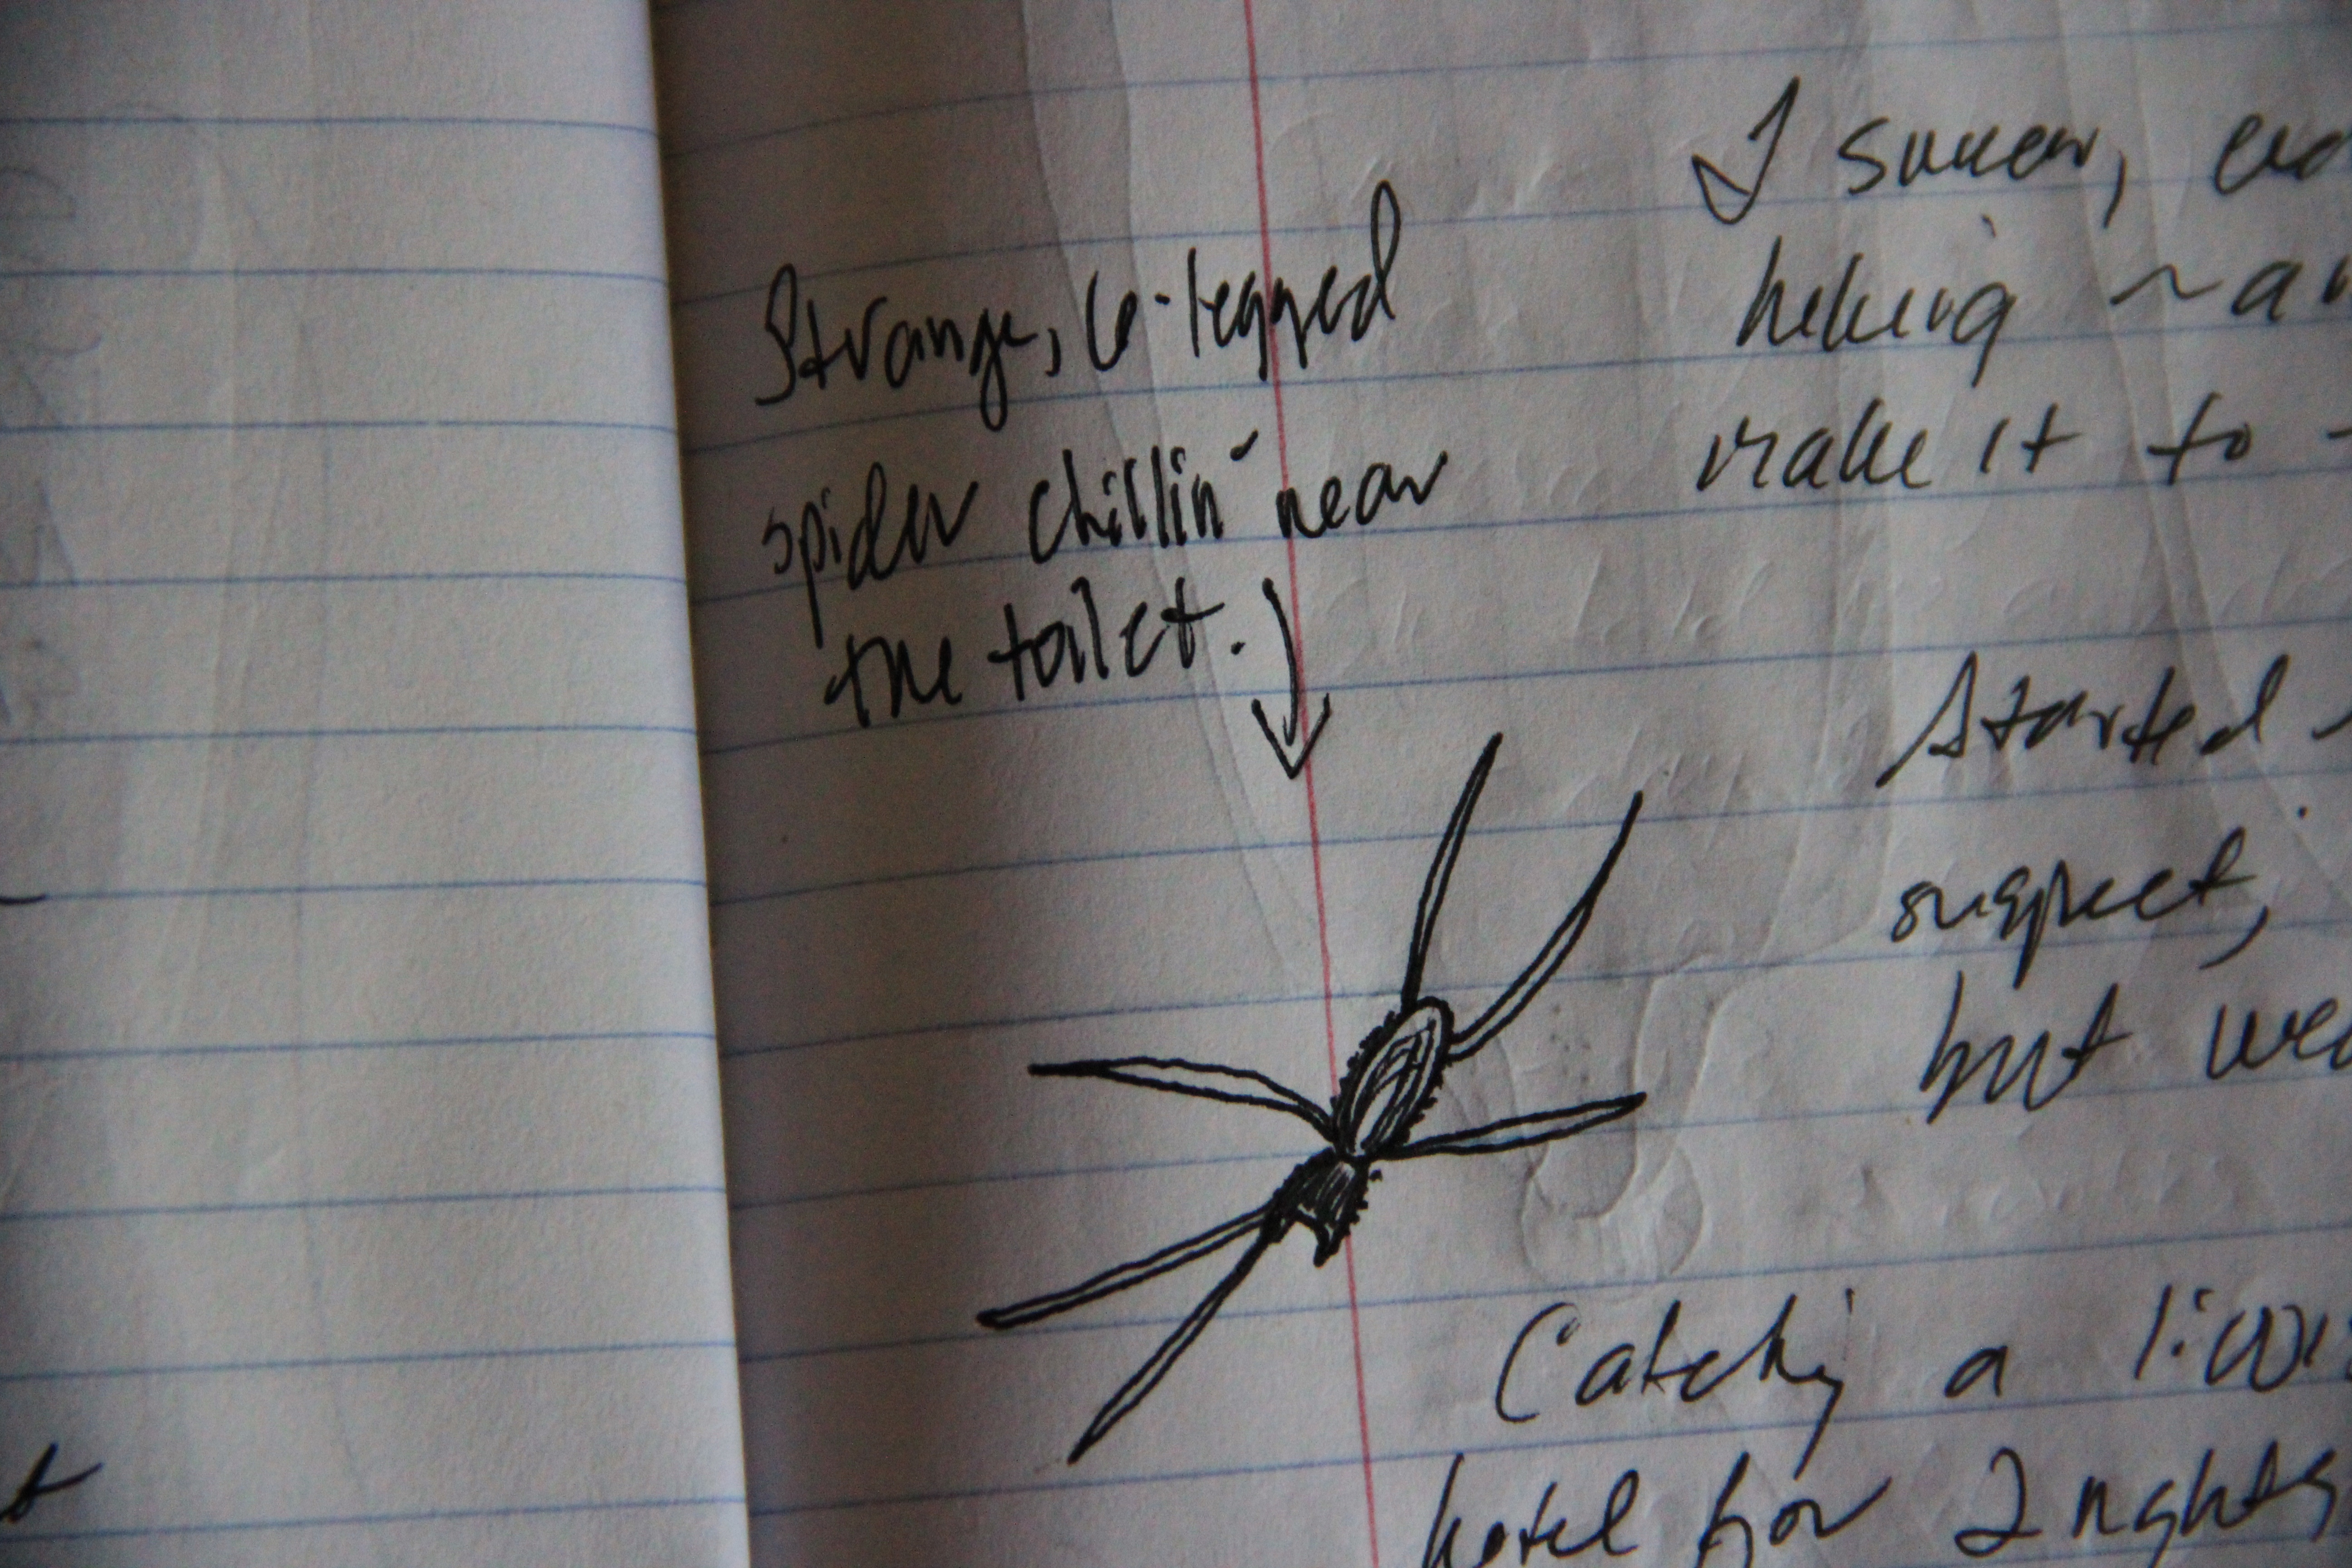 Strange, 6-legged
spider chillin' near
the toilet.
I swear,
hiking
make it to
Started
suspect,
but we
Catching a
hotel for 2 nights